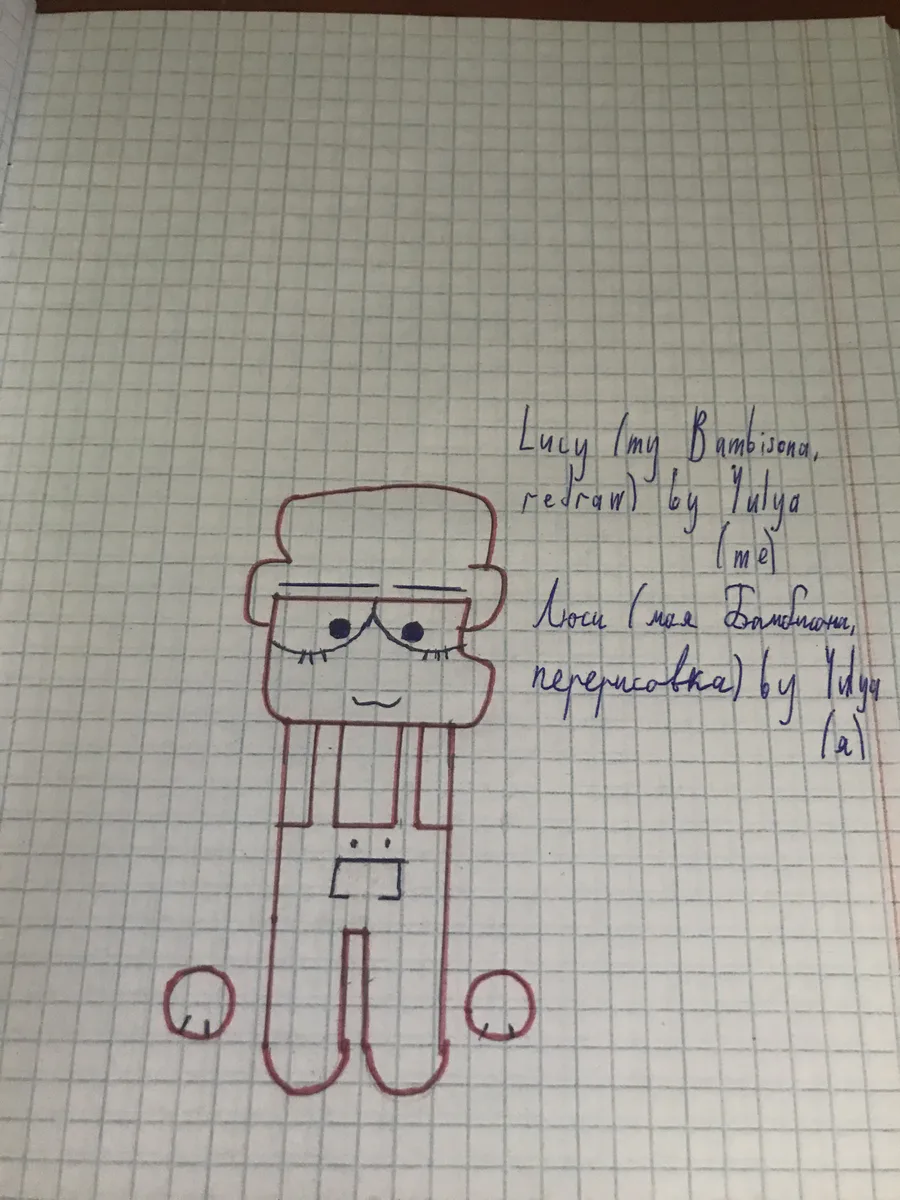 Lucy (my Bambisona,
redraw) by Yulya
(me)
Люси (мая Бамбисона,
перерисовка) by Yulya
(я)